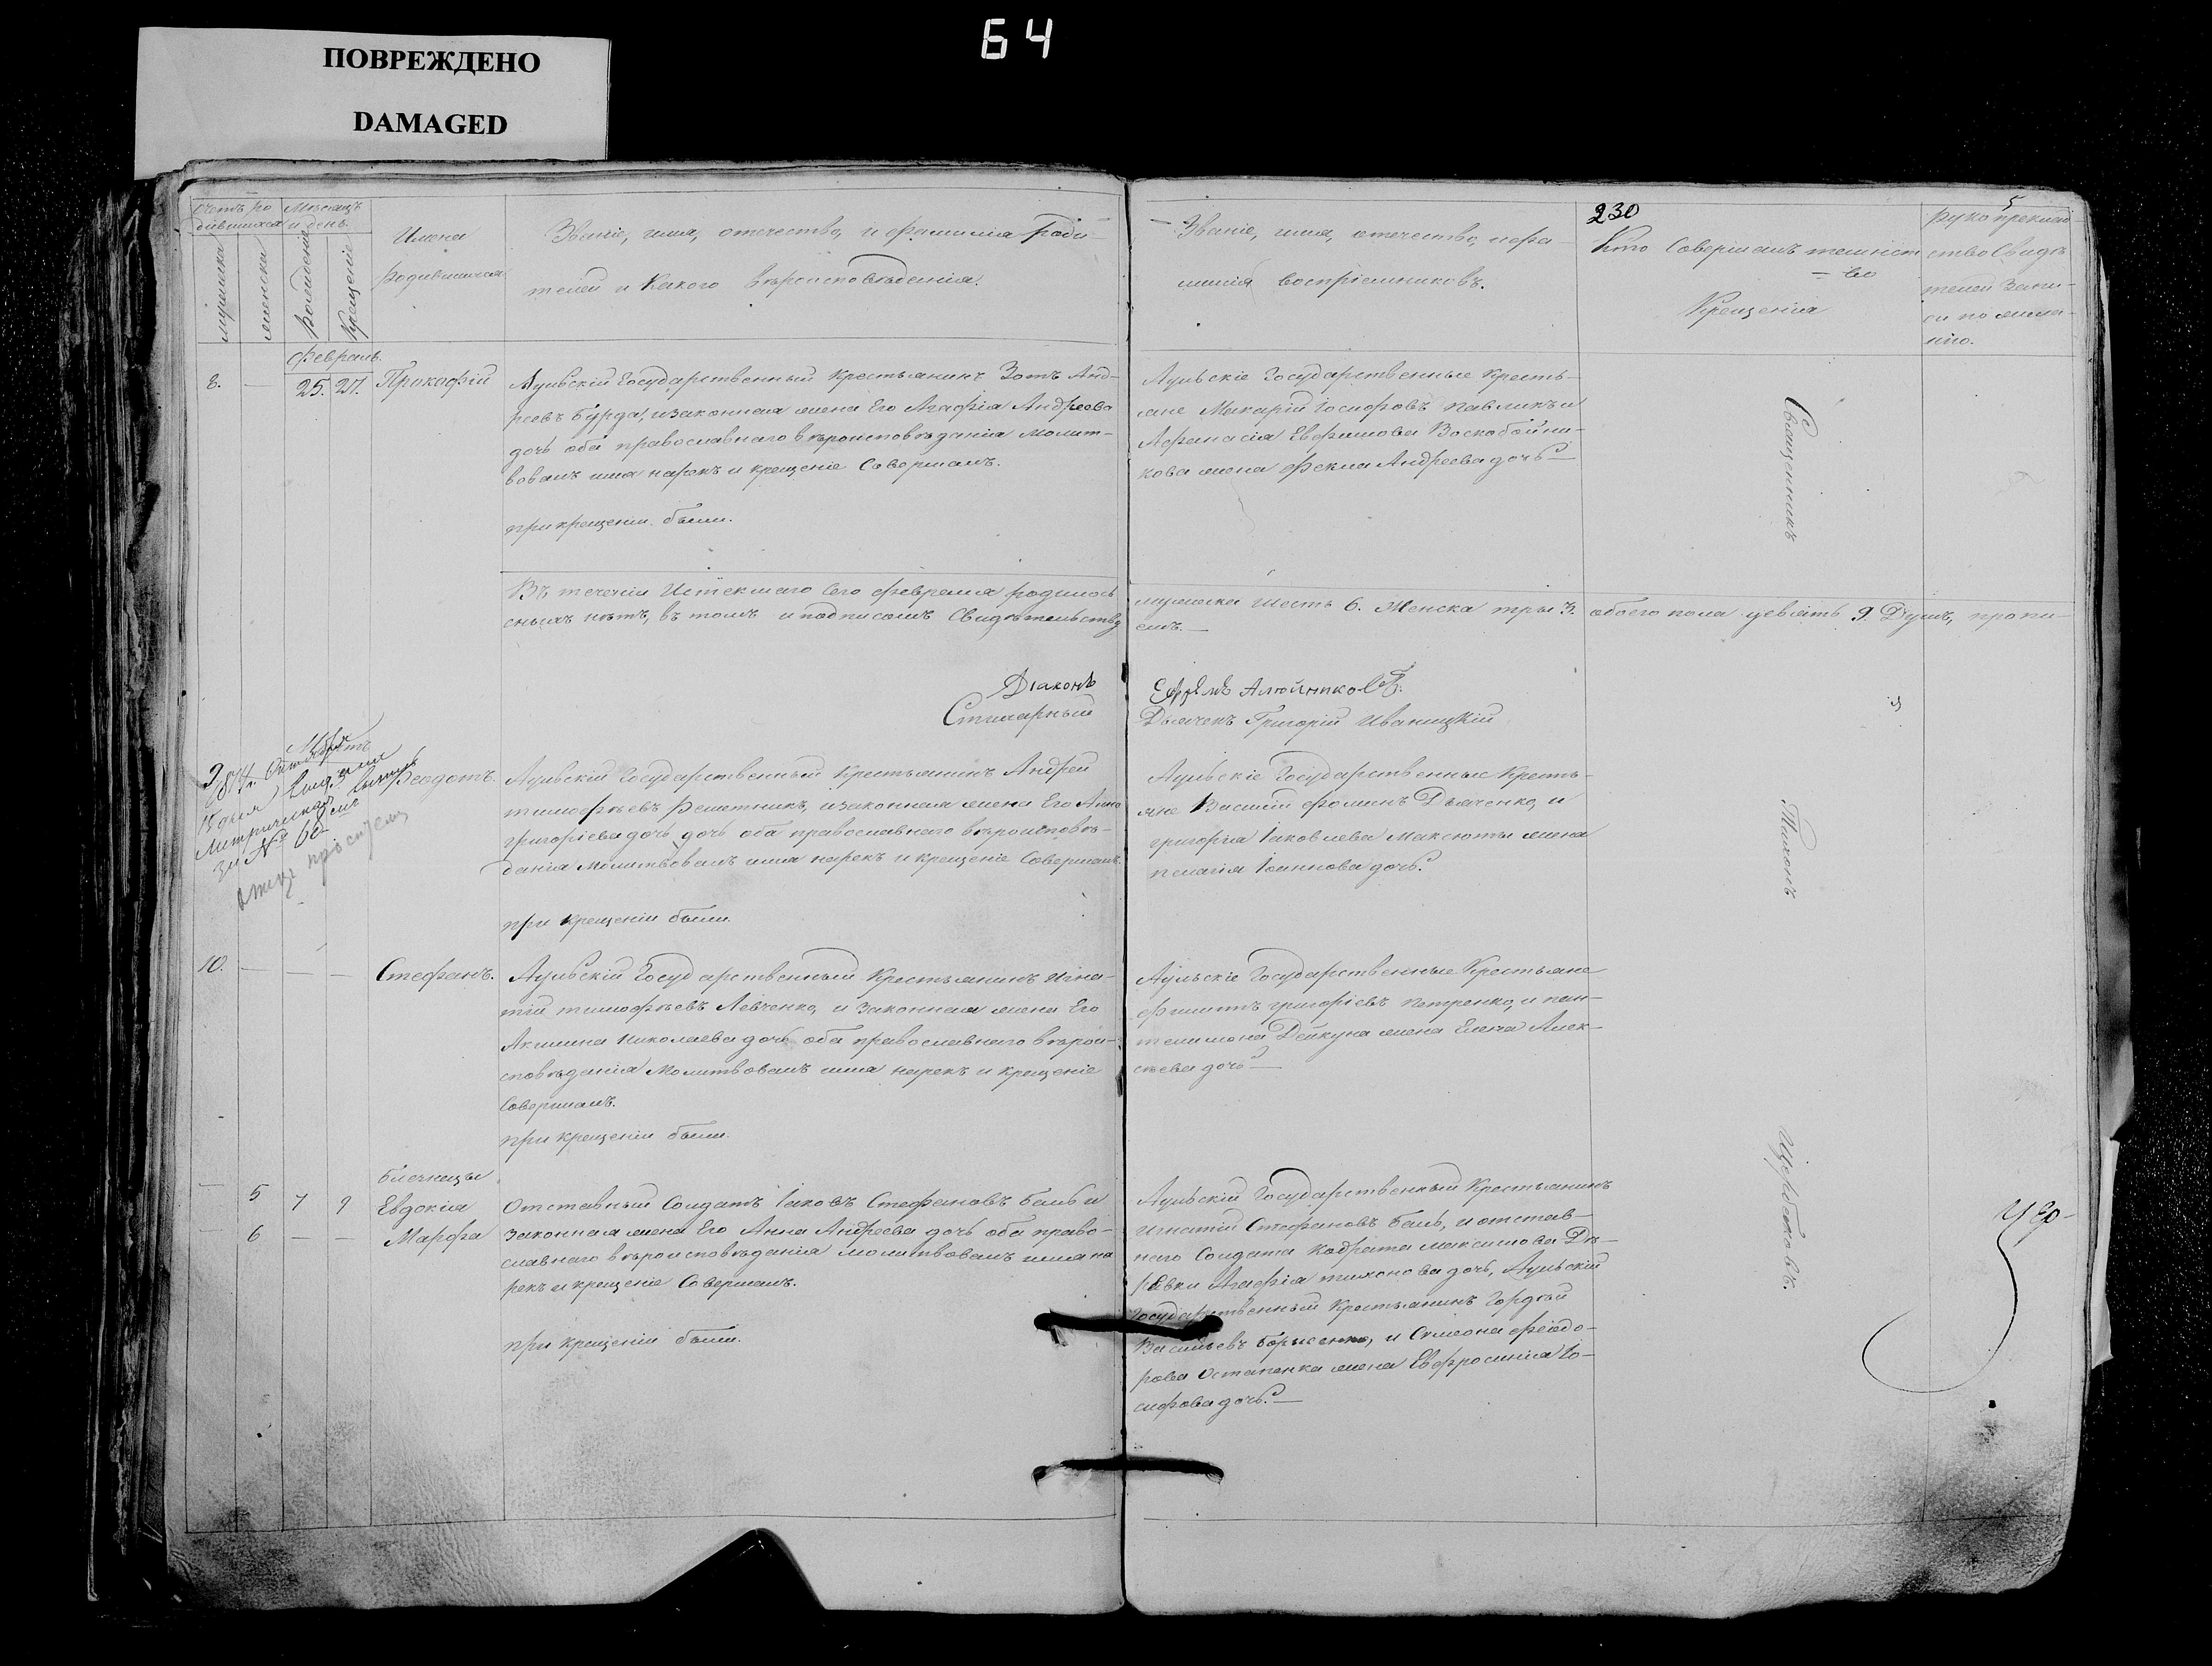 64
ПОВРЕЖДЕНО
DAMAGED
230
5
Счетъ ро
дившихся
Мѣсяцъ
и день.
мужеска
женска
Рожденія
Крещенія
Имена
родившихся
Званіе, имя, отечество, и фамилія роди-
телей и Какого вѣроисповѣденія.
Званіе, имя, отечество, и фа-
милія воспріемниковъ.
Кто Совершалъ таинст
-во
Крещенія
рукоприклад
ство Свидѣ
телей Запи-
си по жела-
нію.
февраль.
8. — 25. 27. Прокофій
Аульскій Государственный Крестьянинъ Зотъ Анд-
реевъ Бурда, и законная жена Его Агафія Андреева
дочь оба православнаго вѣроисповѣданія Молит-
вовалъ имя нарекъ и крещеніе Совершалъ.
при крещеніи были.
Аульскіе Государственные Кресть-
яне Макарій Іосифовъ Павликъ и
Афанасія Евфимова Воскобойни-
кова жена Фекла Андреева дочь —
Священникъ
Въ теченіи Истекшаго Сего февраля родилось
мужеска шесть 6. Женска три 3. обоего пола девять 9. Душъ, пропи-
сныхъ нѣтъ, въ томъ и подписомъ Свидѣтельству
емъ. —
Діаконъ Ефремъ Алюйниковъ.
Стихарный Дьячекъ Григорій Иваницкій
Мартъ
9
Феодотъ.
Аульскій Государственный Крестьянинъ Андрей
тимофѣевъ Решетникъ, и законная жена Его Анна
григоріева дочь дочь оба православнаго вѣроисповѣ-
данія Молитвовалъ имя нарекъ и крещеніе Совершалъ.
при крещеніи были.
Аульскіе Государственные Кресть-
яне Василій фоминъ Дьяченко, и
григорія Іаковлева Максюты жена
пелагія Іоаннова дочь.
Тихонъ
10. — — — Стефанъ.
Аульскій Государственный Крестьянинъ Игна-
тій тимофѣевъ Левченко, и Законная жена Его
Акилина Николаева дочь оба православнаго вѣрои-
сповѣданія Молитвовалъ имя нарекъ и крещеніе
Совершалъ.
при крещеніи были.
Аульскіе Государственные Крестьяне
филиппъ григоріевъ петренко, и пан-
телимона Дейкуна жена Елена Алек-
сѣева дочь —
близнецы
— 5 7 9 Евдокія
— 6 — — Марфа
Отставный Солдатъ Іаковъ Стефановъ Баль и
Законная жена Его Анна Андреева дочь оба право-
славнаго вѣроисповѣданія молитвовалъ имя на
рекъ и крещеніе Совершалъ.
при крещеніи были.
Аульскій Государственный Крестьянинъ
игнатій Стефановъ Баль, и отстав-
наго Солдата Кодрата максимова Дѣ-
ревки Агафія тихонова дочь, Аульскій
Государственный Крестьянинъ Гордѣй
Васильевъ Борисенко, и Симеона феодо-
рова Остапенка жена Евфросинія Іо-
сифова дочь. —
Щербаковъ.